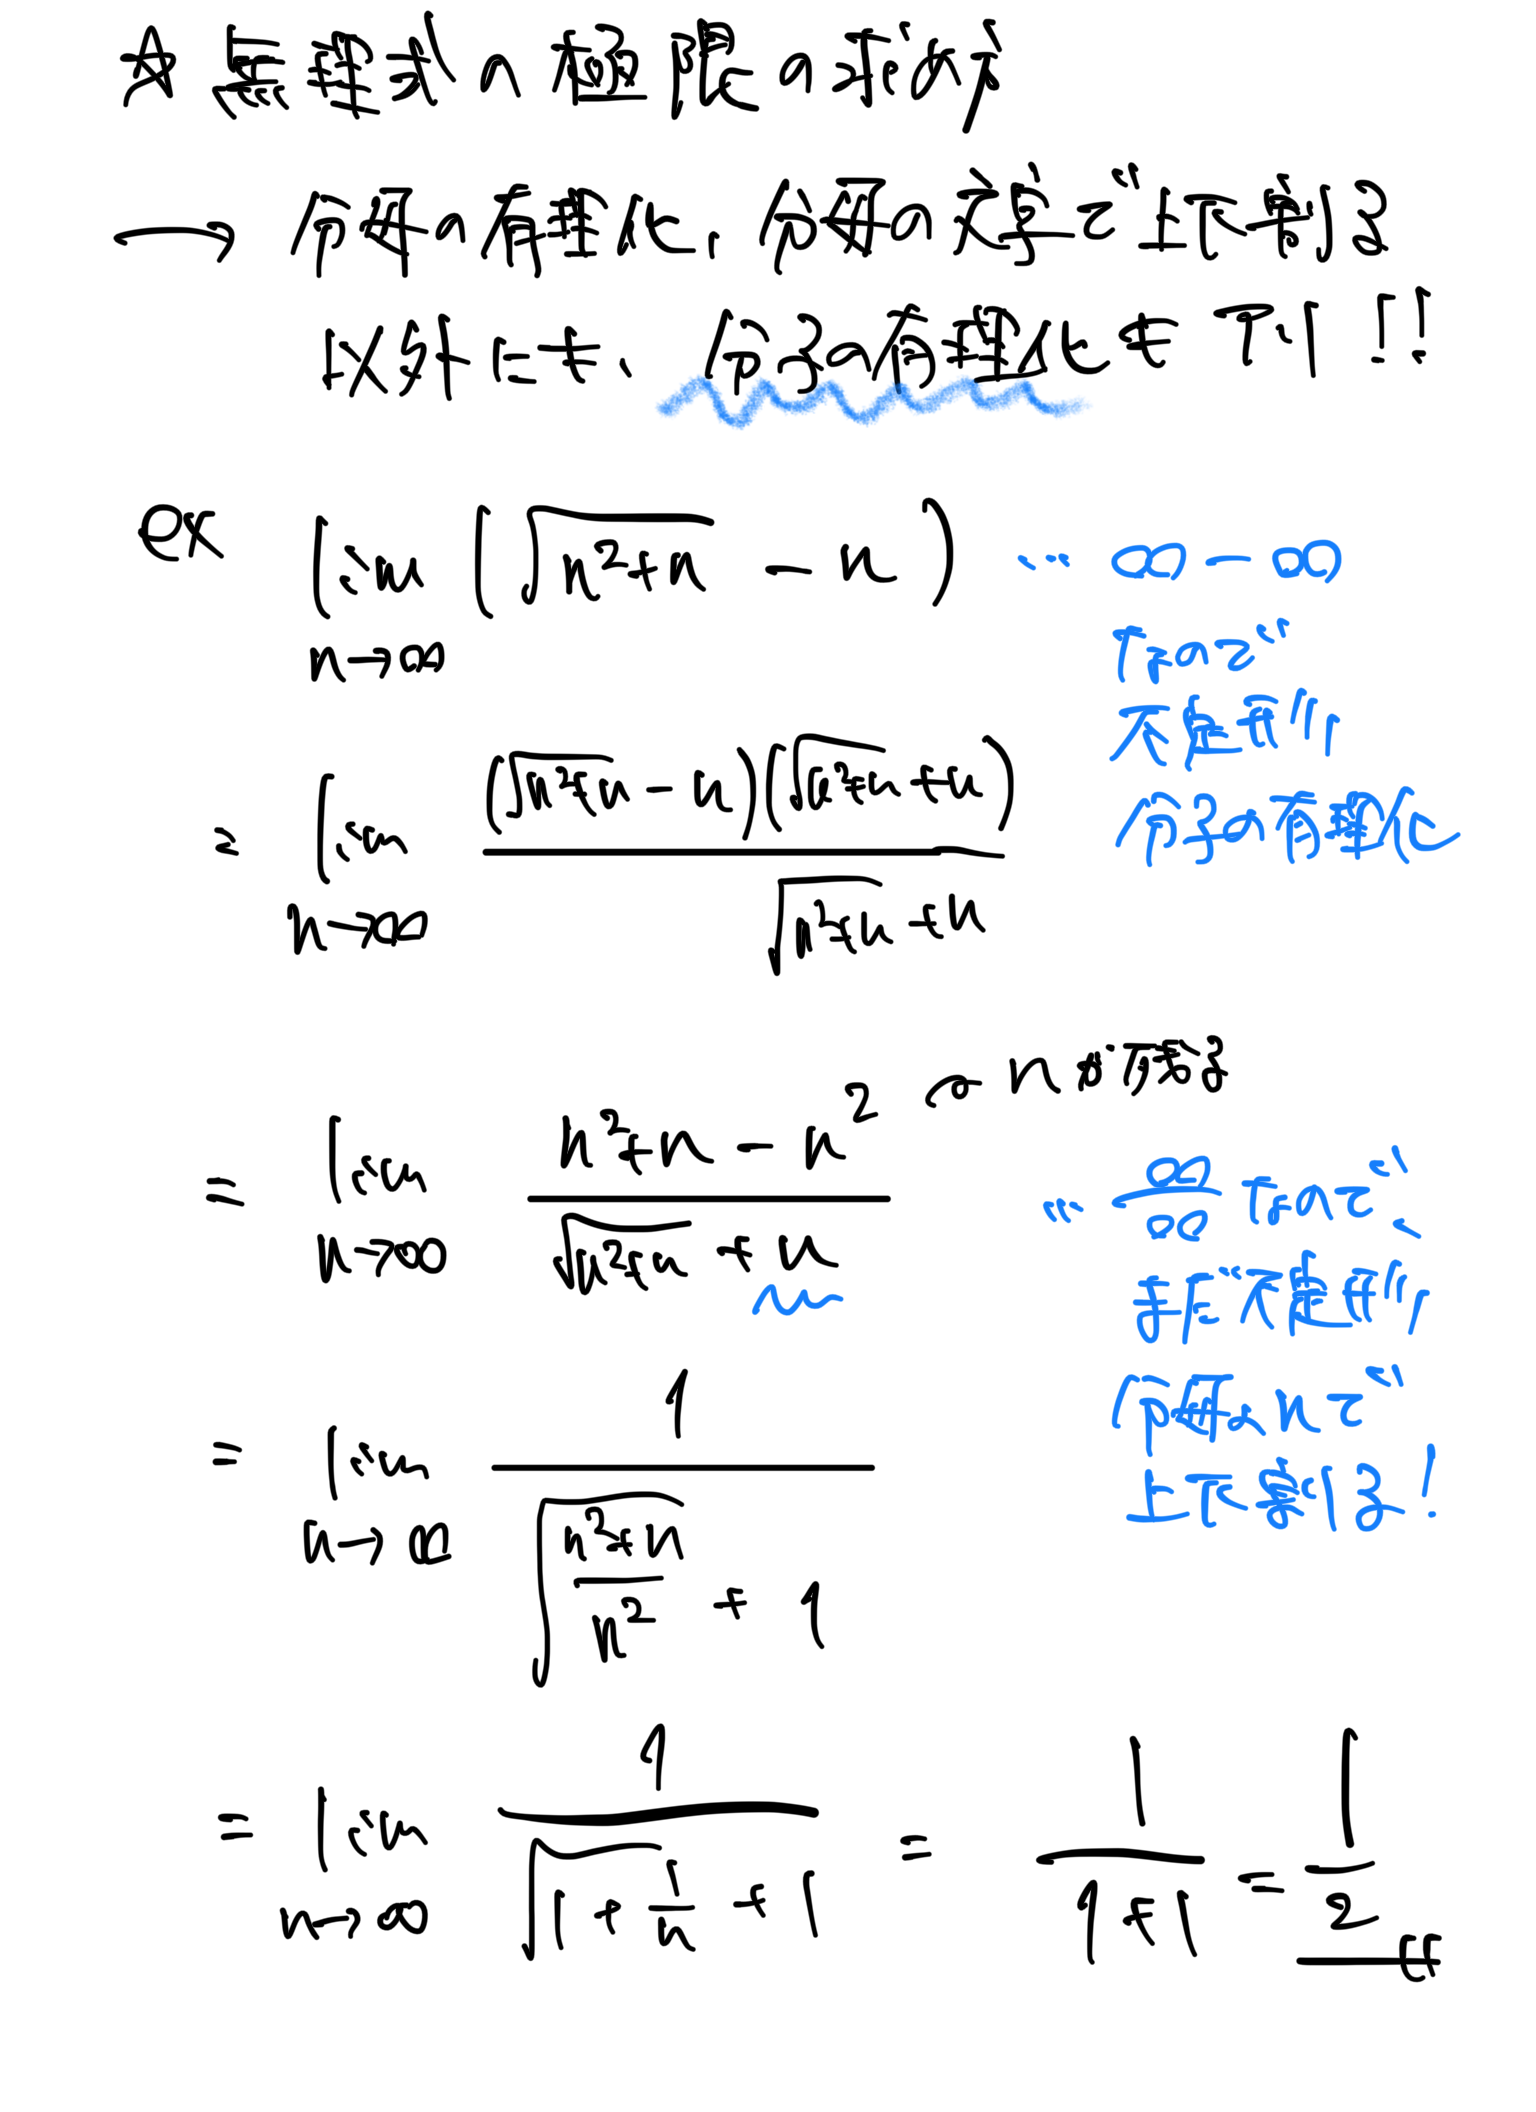 ☆ 無理式の極限の求め方
→ 分母の有理化、分母の文字で上下割る
以外にも、分子の有理化もアリ!!
ex lim n→∞ (√(n²+n) - n) … ∞-∞
なので
不定形
= lim n→∞ (√(n²+n) - n)(√(n²+n) + n) / (√(n²+n) + n)
分子の有理化
= lim n→∞ (n²+n - n²) / (√(n²+n) + n) nが残る
… ∞/∞ なので、
まだ不定形
分母のnで
上下割る!
= lim n→∞ 1 / (√((n²+n)/n²) + 1)
= lim n→∞ 1 / (√(1 + 1/n) + 1) = 1/(1+1) = 1/2